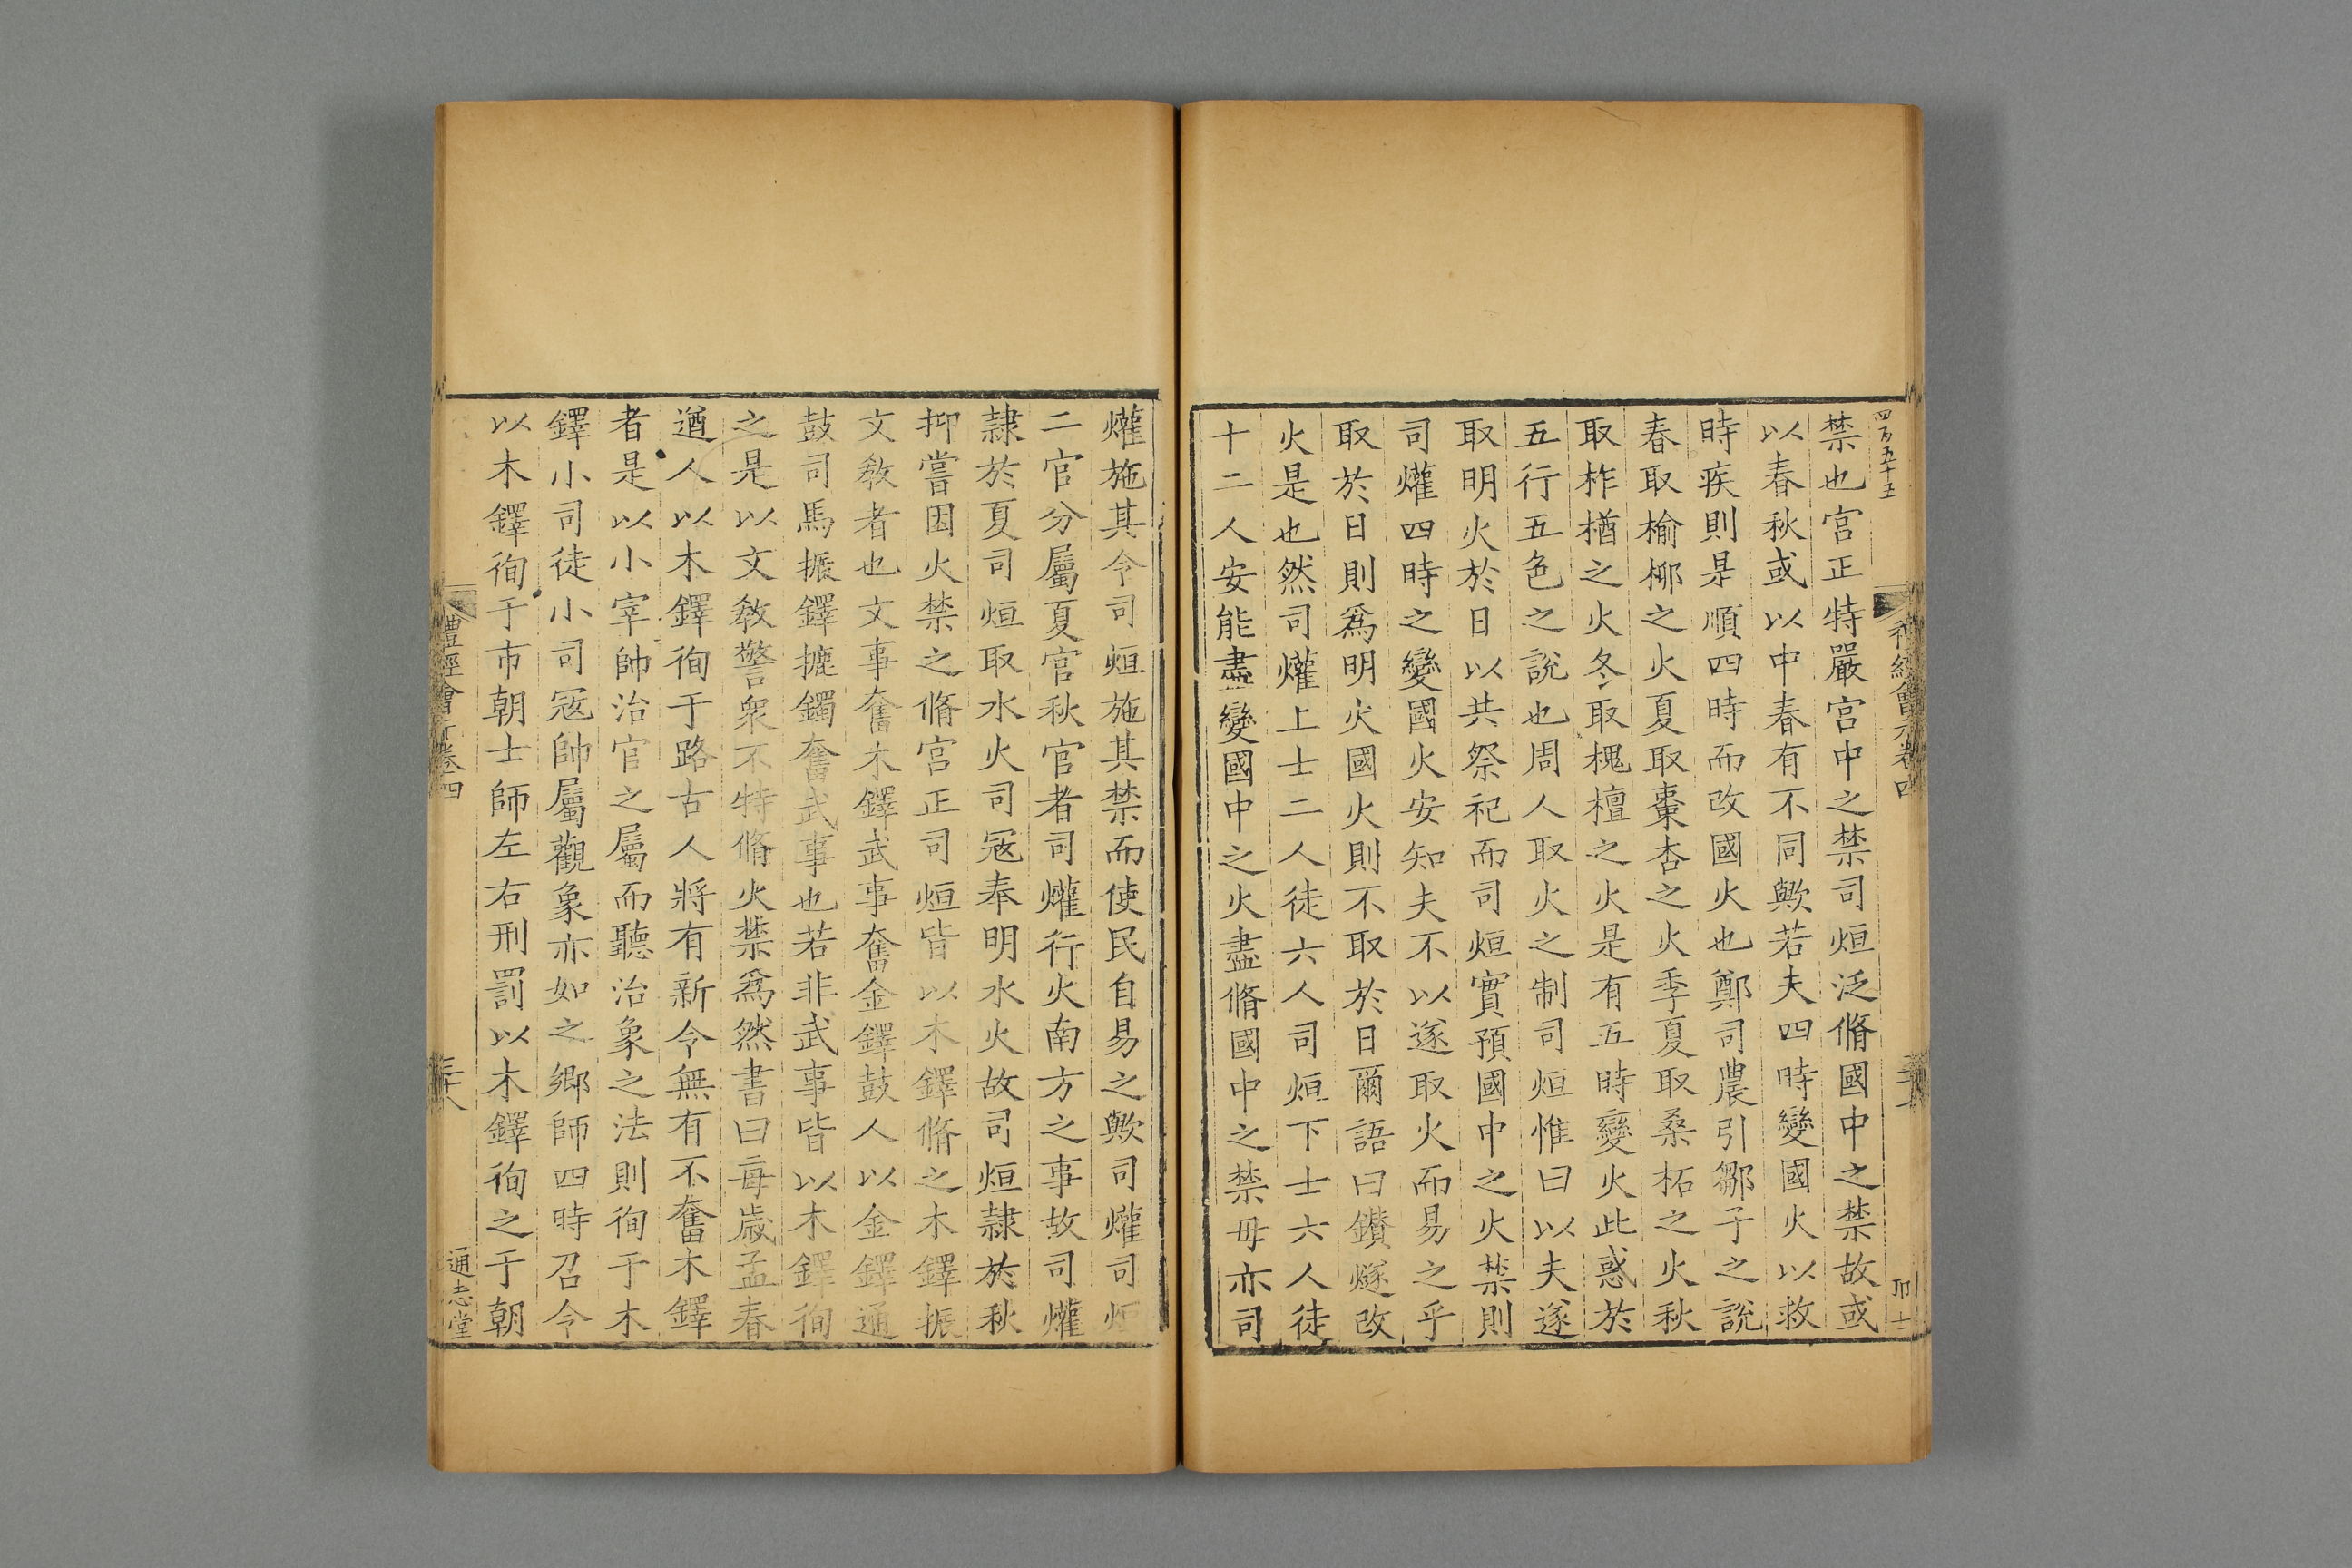 四百五十五
禁也宫正特嚴宫中之禁司烜泛脩國中之禁故或
以春秋或以中春有不同歟若夫四時變國火以救
時疾則是順四時而改國火也鄭司農引鄒子之說
春取榆柳之火夏取棗杏之火季夏取桑柘之火秋
取柞楢之火冬取槐檀之火是有五時變火此惑於
五行五色之說也周人取火之制司烜惟曰以夫遂
取明火於日以共祭祀而司烜實預國中之火禁則
司爟四時之變國火安知夫不以遂取火而易之乎
取於日則爲明火國火則不取於日爾語曰鑚燧改
火是也然司爟上士二人徒六人司烜下士六人徒
十二人安能盡變國中之火盡脩國中之禁毋亦司
爟施其令司烜施其禁而使民自易之歟司爟司烜
二官分屬夏官秋官者司爟行火南方之事故司爟
隷於夏司烜取水火司冦奉明水火故司烜隷於秋
抑嘗因火禁之脩宫正司烜皆以木鐸脩之木鐸振
文敎者也文事奮木鐸武事奮金鐸鼓人以金鐸通
鼓司馬振鐸摝鐲奮武事也若非武事皆以木鐸徇
之是以文敎警衆不特脩火禁爲然書曰每歲孟春
遒人以木鐸徇于路古人將有新令無有不奮木鐸
者是以小宰帥治官之屬而聽治象之法則徇于木
鐸小司徒小司冦帥屬觀象亦如之鄉師四時召令
以木鐸徇于市朝士師左右刑罰以木鐸徇之于朝
禮經會元卷四
三十八
通志堂